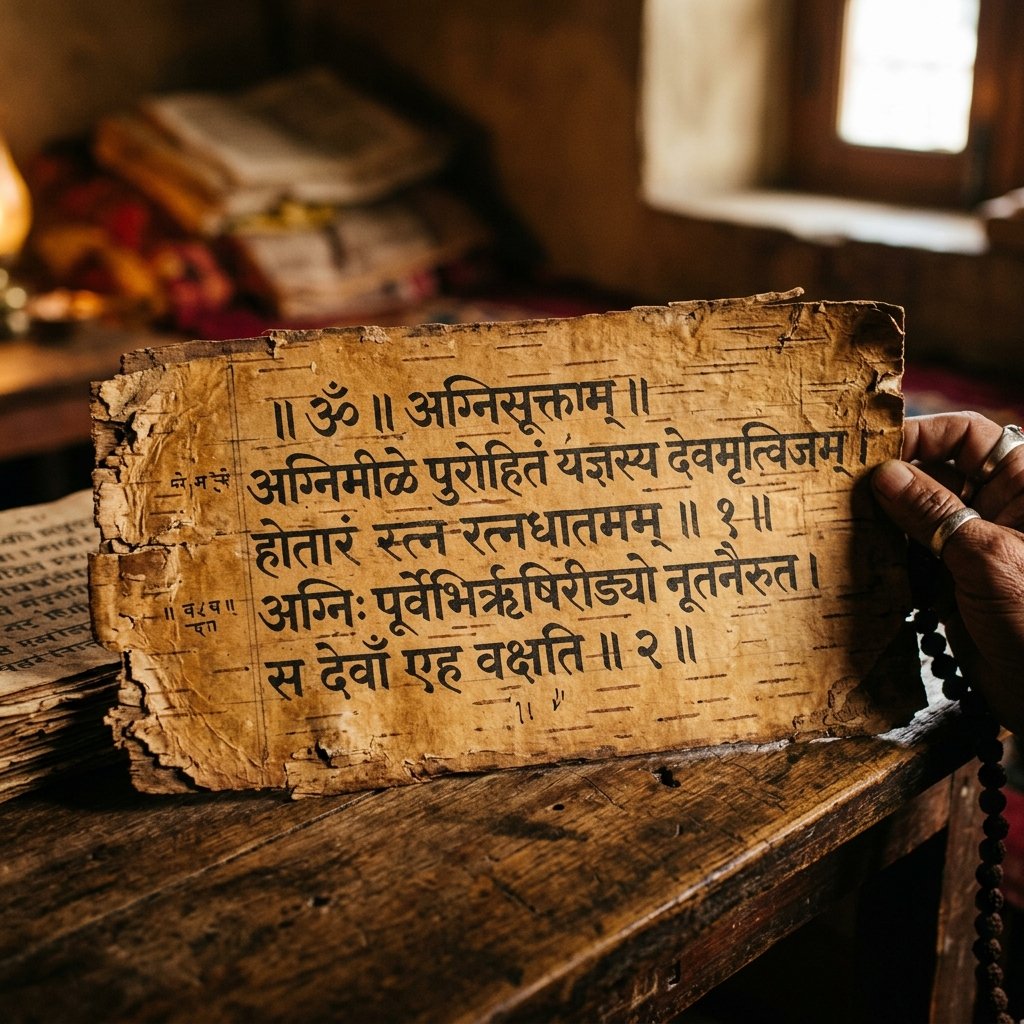 ॥ ॐ ॥ अग्निसूक्ताम् ॥
अग्निमीळे पुरोहितं यज्ञस्य देवमृत्विजम् ।
होतारं स्त्न रत्नधातमम् ॥ १ ॥
अग्निः पूर्वेभिर्ऋषिरीड्यो नूतनैरुत ।
स देवाँ एह वक्षति ॥ २ ॥